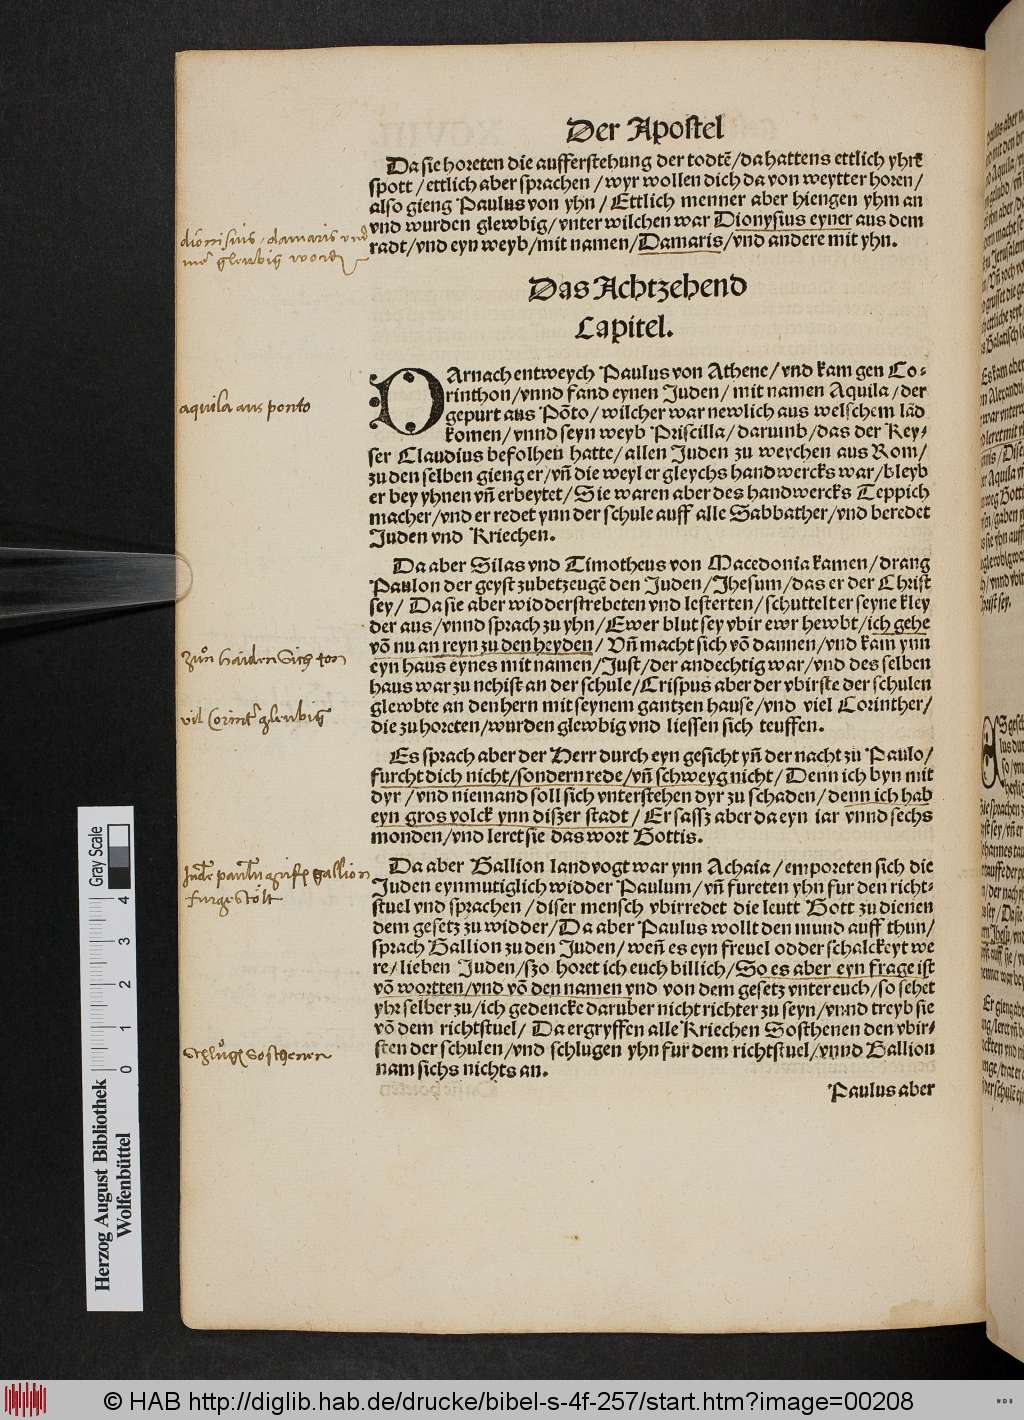 Der Apostel
Da sie horeten die aufferstehung der todtē/da hattens ettlich yhrē
spott/ettlich aber sprachen/wyr wollen dich da von weytter horen/
also gieng Paulus von yhn/Ettlich menner aber hiengen yhm an
vnd wurden glewbig/vnter wilchen war Dionysius eyner aus dem
radt/vnd eyn weyb/mit namen/Damaris/vnd andere mit yhn.
dionisius, damaris vnd
glewbig
Das Achtzehend
Capitel.
DArnach entweych Paulus von Athene/vnd kam gen Co-
rinthon/vnnd fand eynen Juden/mit namen Aquila/der
gepurt aus Pōto/wilcher war newlich aus welschem lād
komen/vnnd seyn weyb Priscilla/darumb/das der Key-
ser Claudius befolhen hatte/allen Juden zu weychen aus Rom/
zu den selben gieng er/vñ die weyl er gleychs handwercks war/bleyb
er bey yhnen vñ erbeytet/Sie waren aber des handwercks Teppich
macher/vnd er redet ynn der schule auff alle Sabbather/vnd beredet
Juden vnd Kriechen.
aquila aus ponto
Da aber Silas vnd Timotheus von Macedonia kamen/drang
Paulon der geyst zubetzeugē den Juden/Jhesum/das er der Christ
sey/Da sie aber widderstrebeten vnd lesterten/schuttelt er seyne kley
der aus/vnnd sprach zu yhn/Ewer blut sey vbir ewr hewbt/ich gehe
vō nu an reyn zu den heyden/Vñ macht sich vō dannen/vnd kam ynn
eyn haus eynes mit namen/Just/der andechtig war/vnd des selben
haus war zu nehist an der schule/Crispus aber der vbirste der schulen
glewbte an den hern mit seynem gantzen hause/vnd viel Corinther/
die zu horeten/wurden glewbig vnd liessen sich teuffen.
vil Corint glewbig
Es sprach aber der Herr durch eyn gesicht yñ der nacht zu Paulo/
furcht dich nicht/sondern rede/vñ schweyg nicht/Denn ich byn mit
dyr/vnd niemand soll sich vnterstehen dyr zu schaden/denn ich hab
eyn gros volck ynn diszer stadt/Er sassz aber da eyn iar vnnd sechs
monden/vnd leret sie das wort Gottis.
Da aber Gallion landvogt war ynn Achaia/emporeten sich die
Juden eynmutiglich widder Paulum/vñ fureten yhn fur den richt-
stuel vnd sprachen/diser mensch vbirredet die leutt Gott zu dienen
dem gesetz zu widder/Da aber Paulus wollt den mund auff thun/
sprach Gallion zu den Juden/weñ es eyn freuel odder schalckeyt we
re/lieben Juden/szo horet ich euch billich/So es aber eyn frage ist
vō wortten/vnd vō den namen vnd von dem gesetz vnter euch/so sehet
yhr selber zu/ich gedencke daruber nicht richter zu seyn/vnnd treyb sie
vō dem richtstuel/Da ergryffen alle Kriechen Sosthenen den vbir-
sten der schulen/vnd schlugen yhn fur dem richtstuel/vnnd Gallion
nam sichs nichts an.
gallion
furgestölt
sosthenen
Paulus aber
Gray Scale
0 1 2 3 4
Herzog August Bibliothek
Wolfenbüttel
© HAB http://diglib.hab.de/drucke/bibel-s-4f-257/start.htm?image=00208